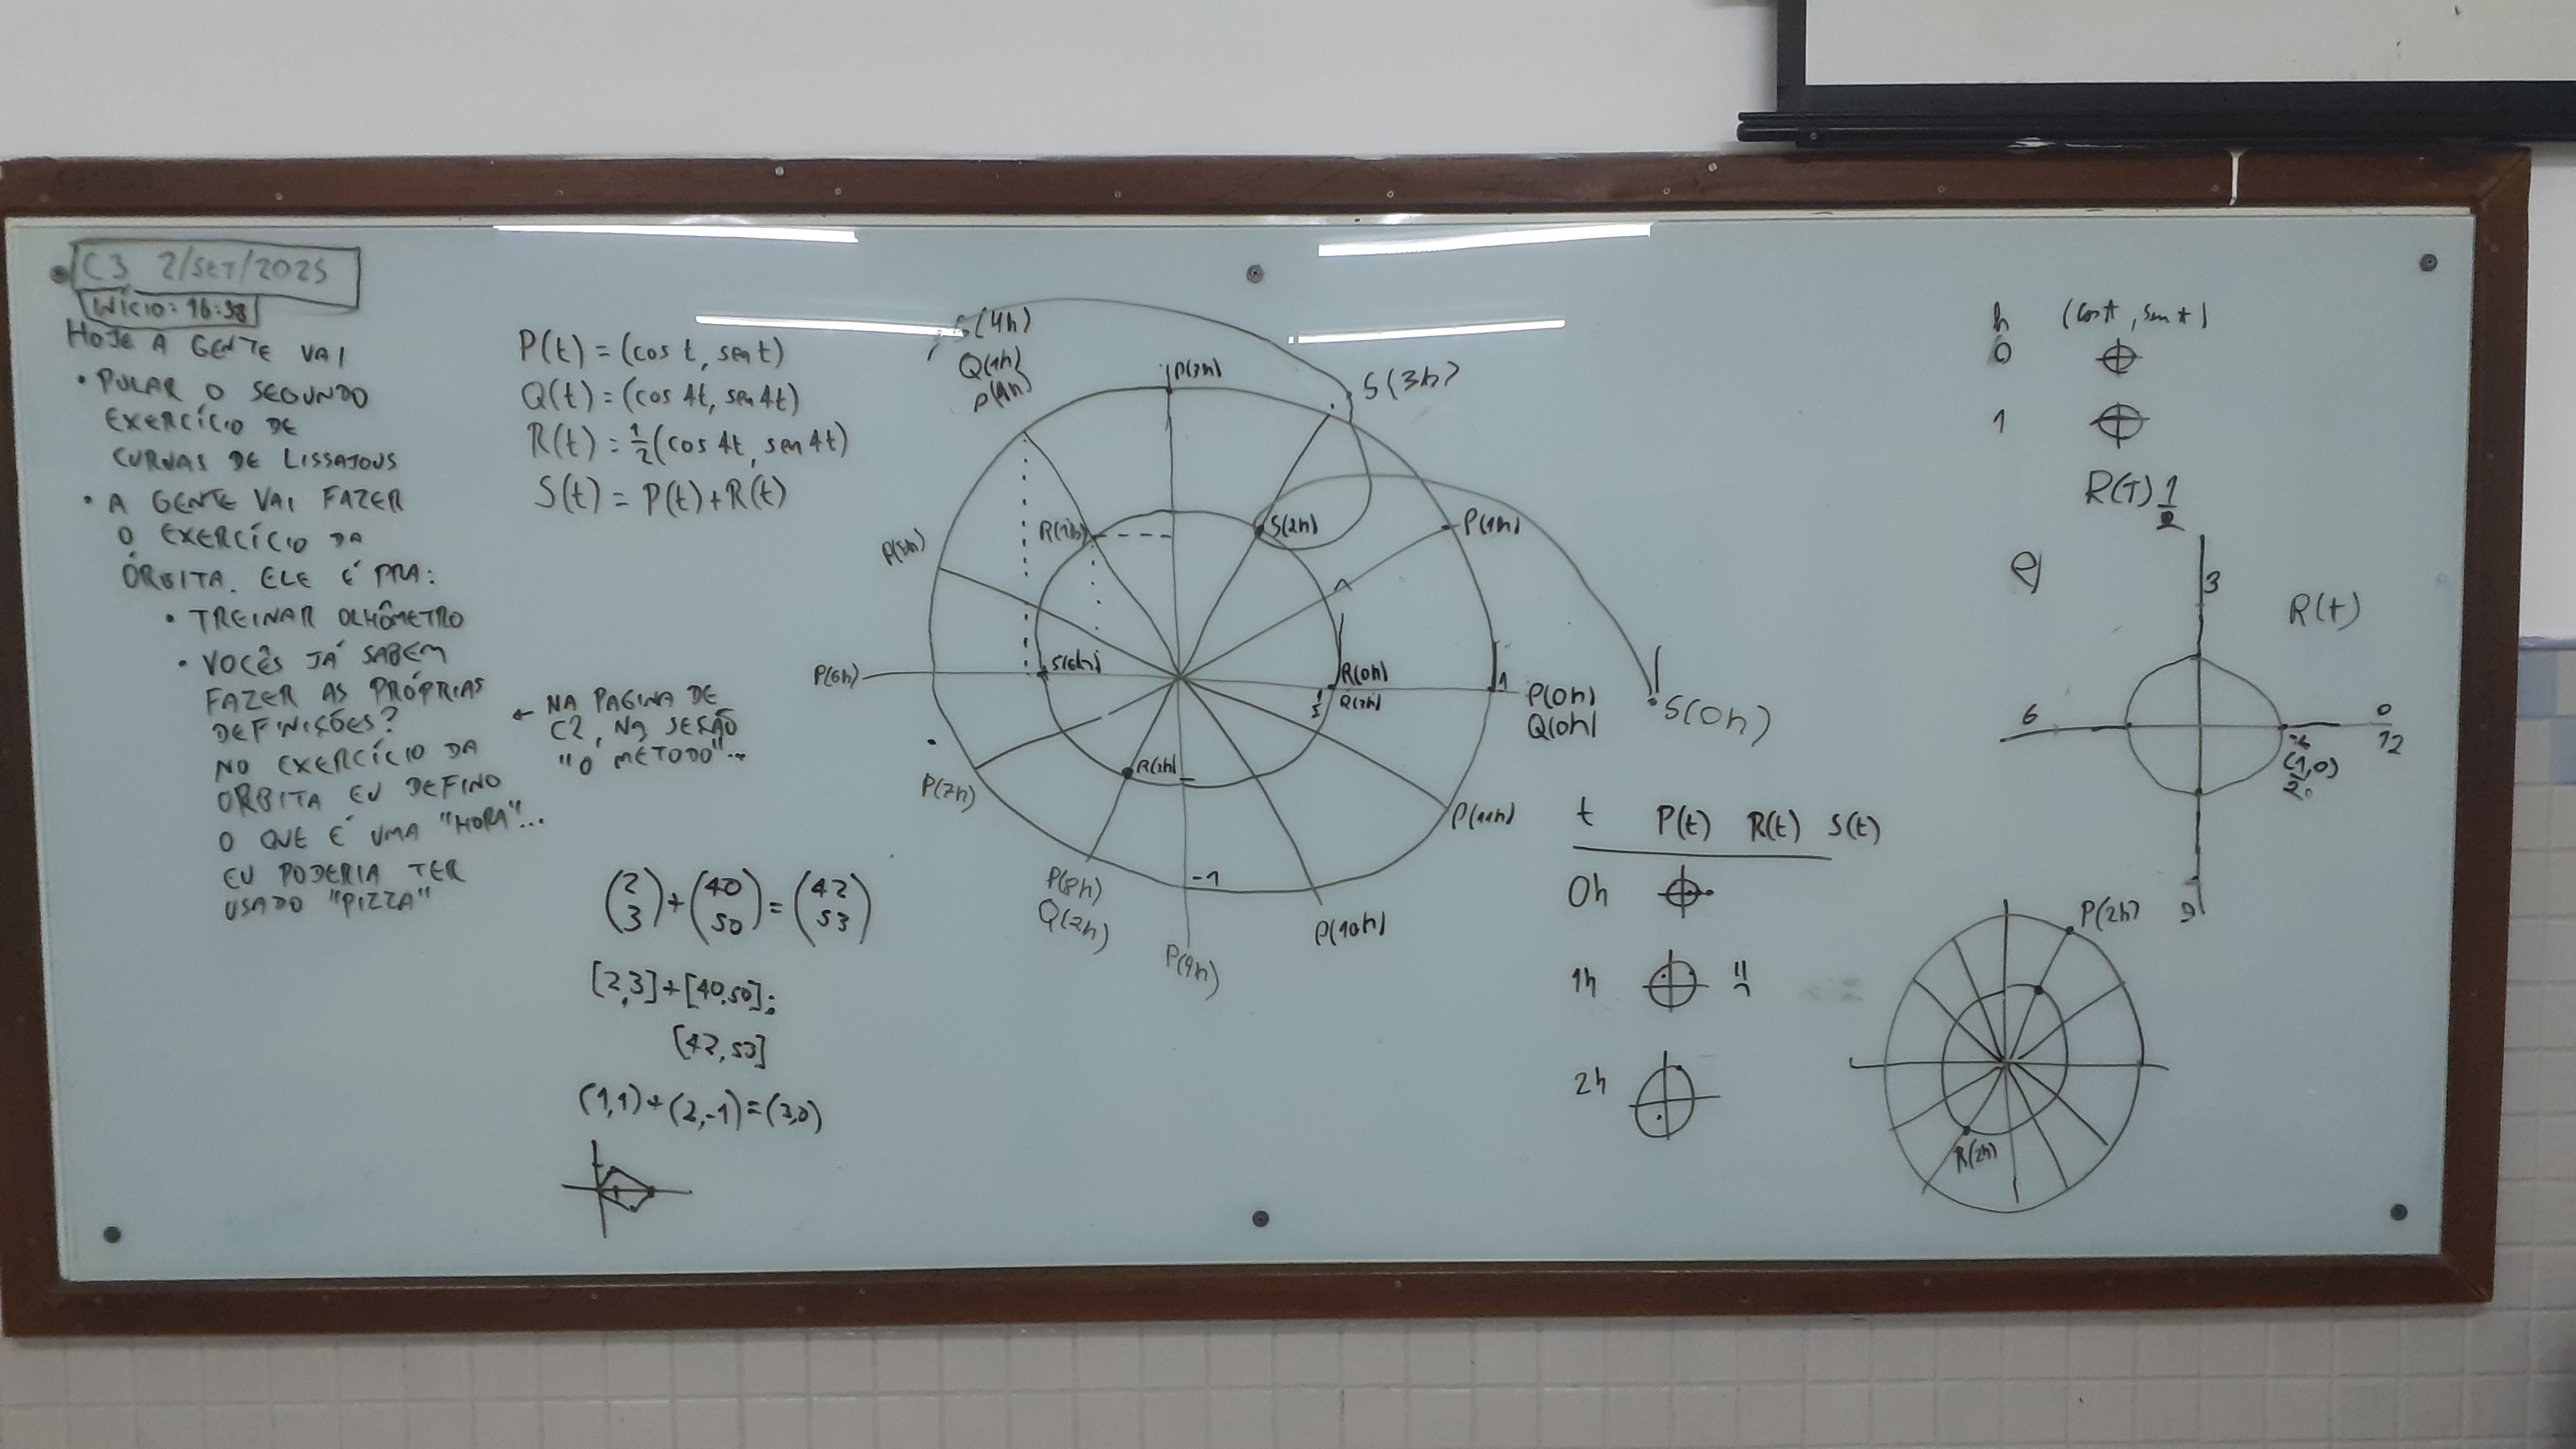 C3 2/SET/2025
INÍCIO: 16:38
HOJE A GENTE VAI
• PULAR O SEGUNDO
EXERCÍCIO DE
CURVAS DE LISSAJOUS
• A GENTE VAI FAZER
O EXERCÍCIO DA
ÓRBITA. ELE É PRA:
• TREINAR OLHÔMETRO
• VOCÊS JÁ SABEM
FAZER AS PRÓPRIAS
DEFINIÇÕES?
NO EXERCÍCIO DA
ÓRBITA EU DEFINO
O QUE É UMA "HORA"...
EU PODERIA TER
USADO "PIZZA"
← NA PAGINA DE
C2, NA SEÇÃO
"O METODO"...
P(t) = (cos t, sen t)
Q(t) = (cos 4t, sen 4t)
R(t) = 1/2 (cos 4t, sen 4t)
S(t) = P(t)+R(t)
(2 3) + (40 50) = (42 53)
[2,3]+[40,50];
[42,53]
(1,1)+(2,-1)=(3,0)
S(4h)
Q(1h)
P(4h)
P(3h)
S(3h)
P(5h)
R(1h)
S(2h)
P(1h)
P(6h)
S(6h)
R(0h)
1
P(0h)
Q(0h)
S(0h)
P(7h)
R(2h)
P(11h)
P(8h)
Q(2h)
-1
P(9h)
P(10h)
h (cos t, sen t)
0
1
R(T) 1/2
e)
3
R(t)
6
0
12
9
t P(t) R(t) S(t)
0h
1h
2h
P(2h)
R(2h)